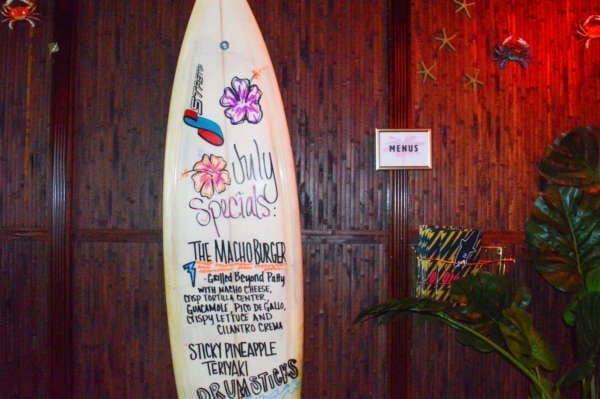 July
Specials:
THE MACHO BURGER
- GRILLED BEYOND PATTY
WITH NACHO CHEESE,
CRISP TORTILLA CENTER,
GUACAMOLE, PICO DE GALLO,
CRISPY LETTUCE AND
CILANTRO CREMA
STICKY PINEAPPLE
TERIYAKI
DRUMSTICKS
MENUS